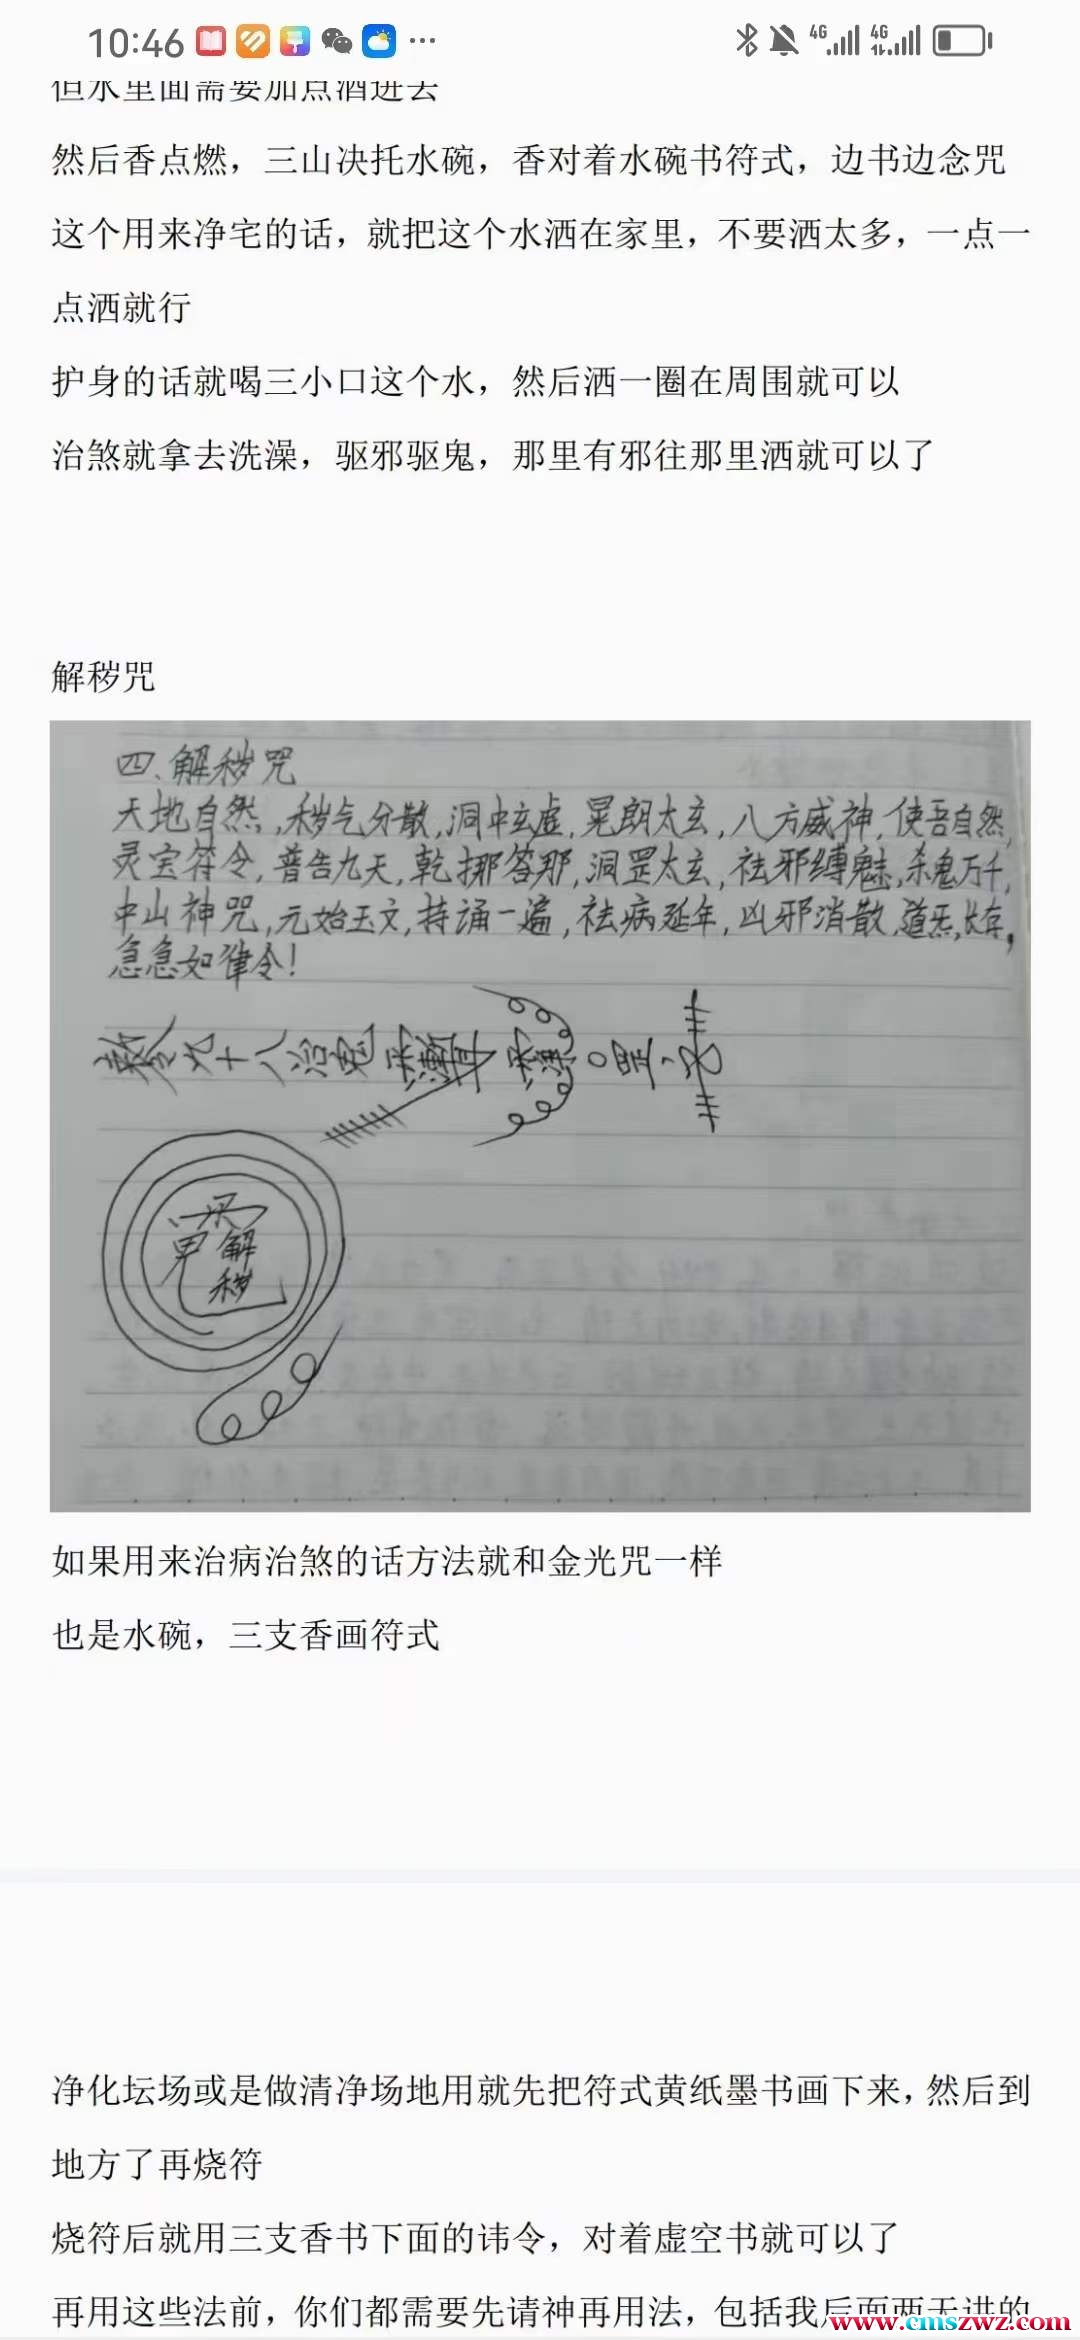 10:46
4G 4G
但水里面需要加点酒进去
然后香点燃，三山决托水碗，香对着水碗书符式，边书边念咒
这个用来净宅的话，就把这个水洒在家里，不要洒太多，一点一
点洒就行
护身的话就喝三小口这个水，然后洒一圈在周围就可以
治煞就拿去洗澡，驱邪驱鬼，那里有邪往那里洒就可以了
解秽咒
四、解秽咒
天地自然，秽气分散，洞中玄虚，晃朗太玄，八方威神，使吾自然，
灵宝符令，普告九天，乾挪答那，洞罡太玄，祛邪缚魅，杀鬼万千，
中山神咒，元始玉文，持诵一遍，祛病延年，凶邪消散，道炁长存，
急急如律令！
解
秽
如果用来治病治煞的话方法就和金光咒一样
也是水碗，三支香画符式
净化坛场或是做清净场地用就先把符式黄纸墨书画下来，然后到
地方了再烧符
烧符后就用三支香书下面的讳令，对着虚空书就可以了
再用这些法前，你们都需要先请神再用法，包括我后面两天讲的
www.cmszwz.com